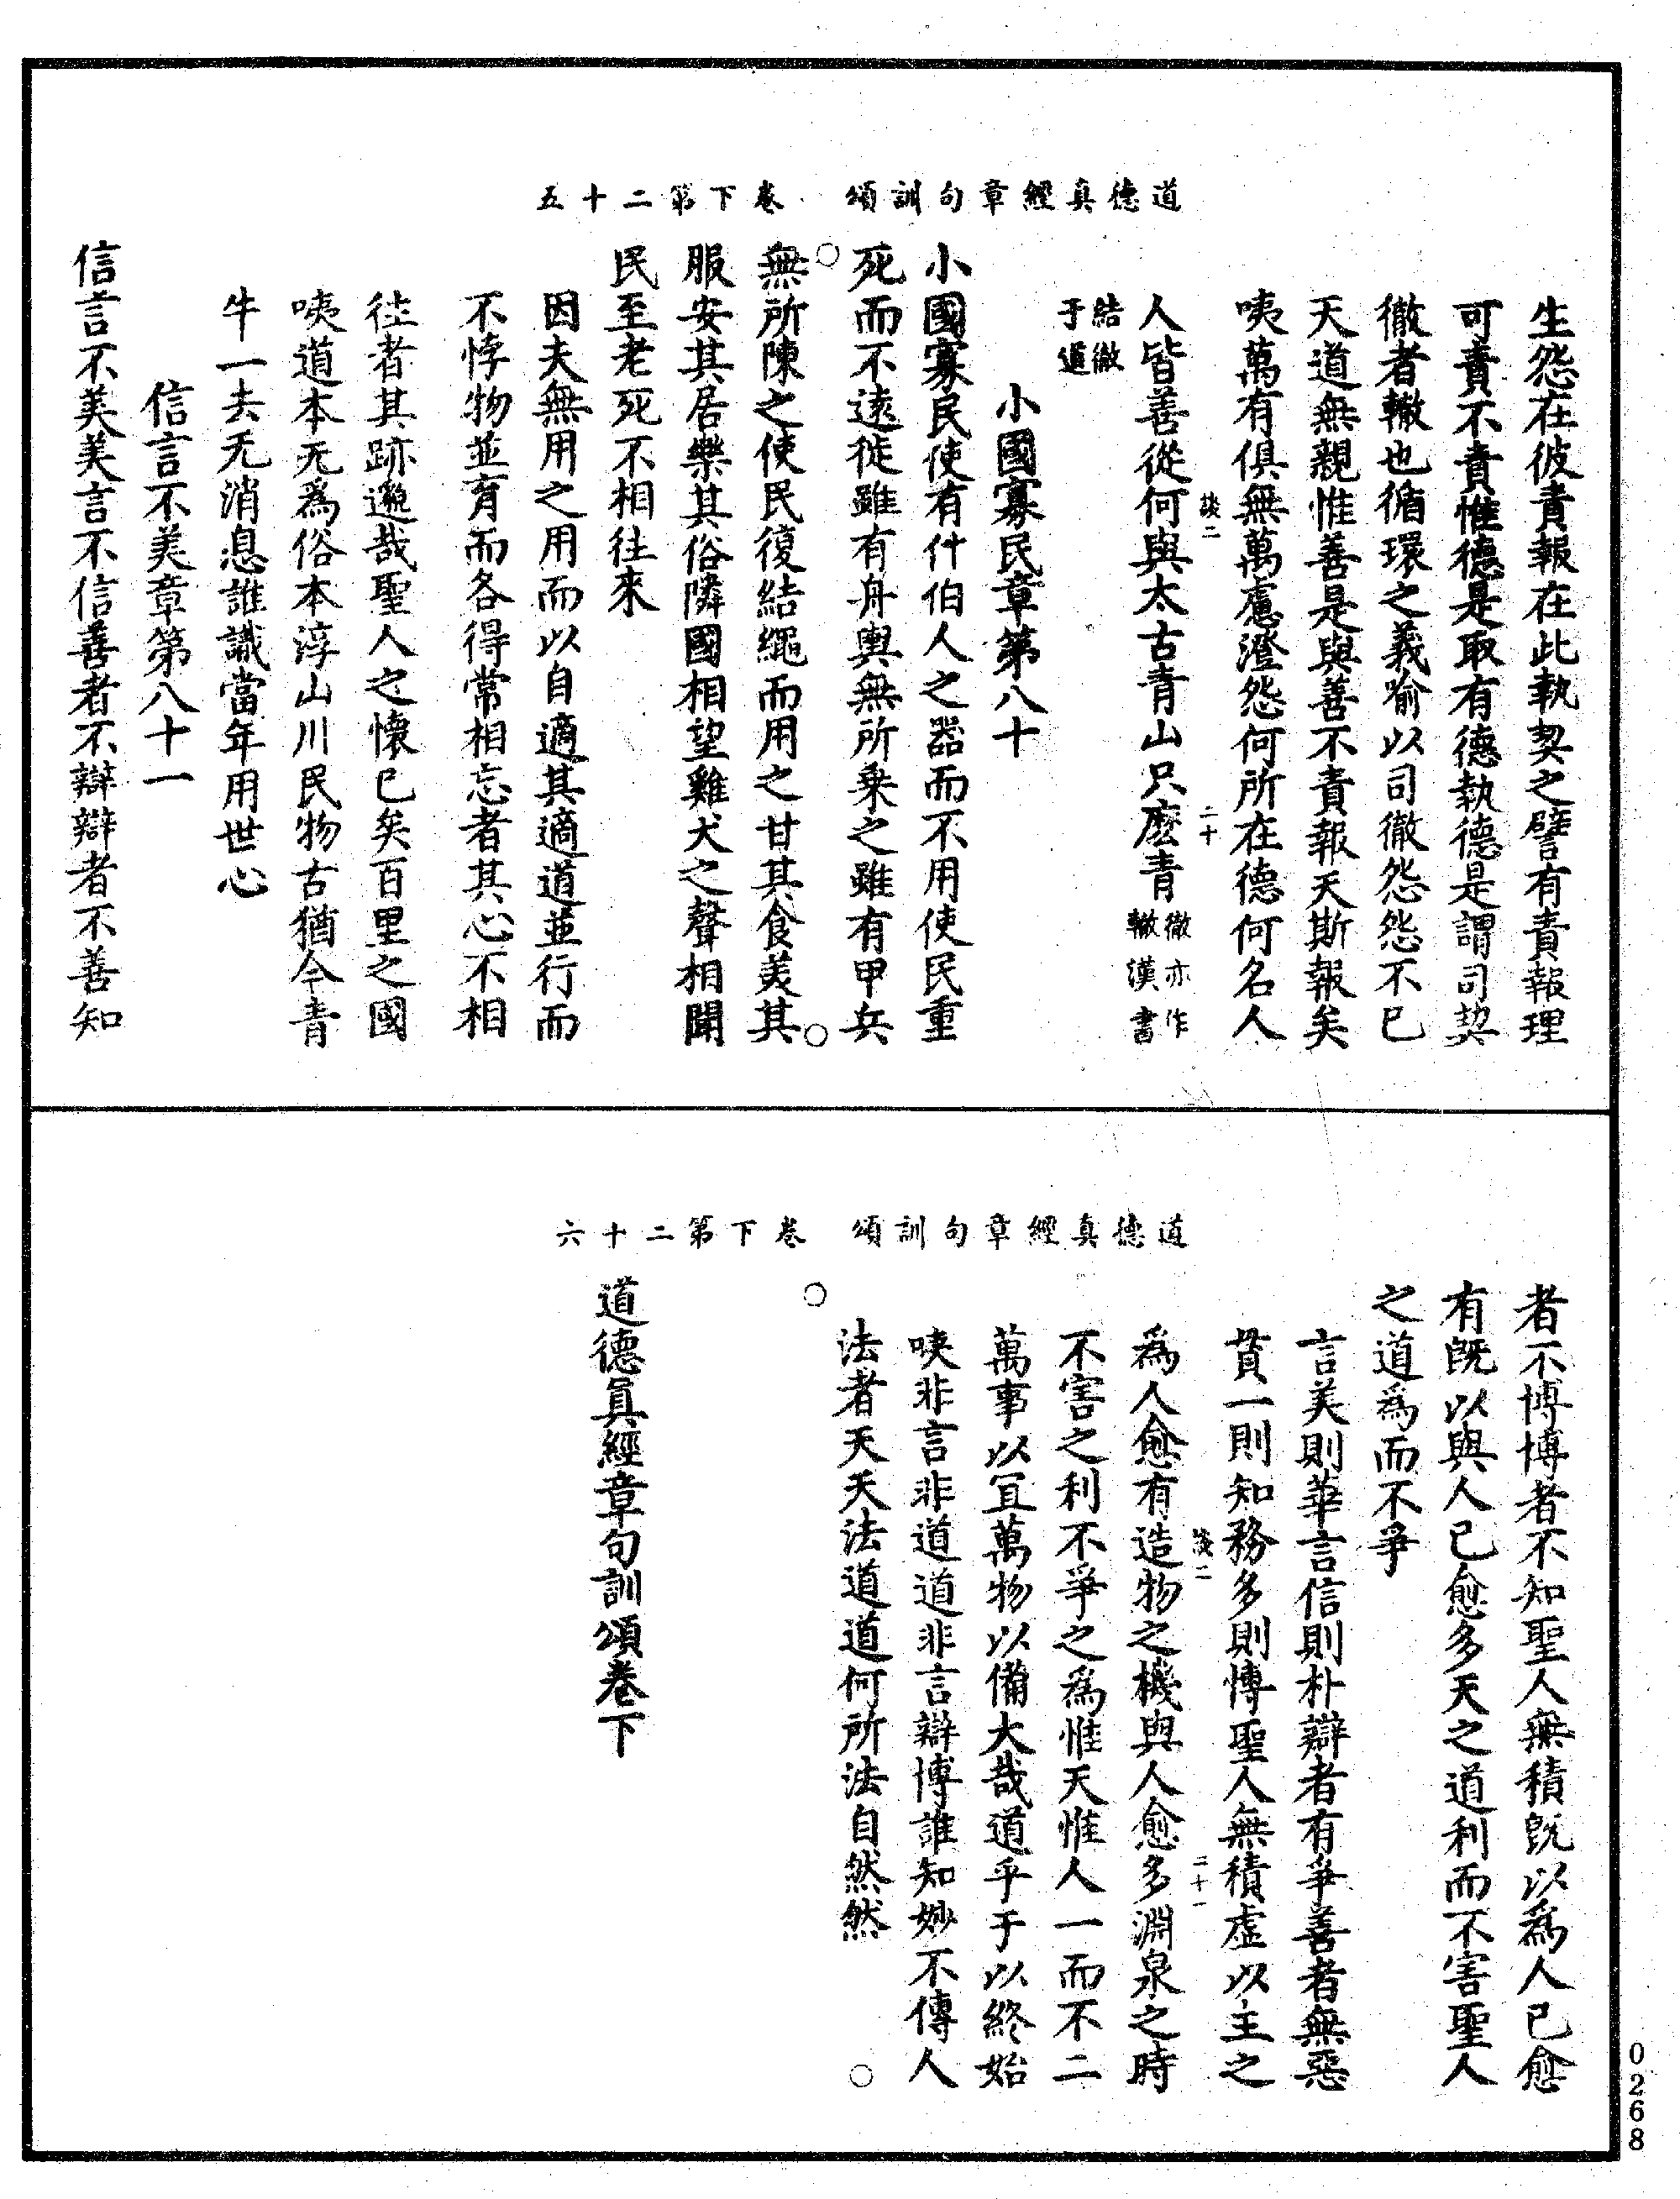 道德真經章句訓頌　卷下第二十五
生怨在彼責報在此執契之譬有責報理
可責不責惟德是取有德執德是謂司契
徹者轍也循環之義喻以司徹怨怨不已
天道無親惟善是與善不責報天斯報矣
咦萬有俱無萬慮澄怨何所在德何名人
談二　二十
人皆善從何與太古青山只麽青徹亦作轍漢書
結徹于道
小國寡民章第八十
小國寡民使有什伯人之器而不用使民重
死而不遠徙雖有舟輿無所乗之雖有甲兵
無所陳之使民復結繩而用之甘其食美其
服安其居樂其俗隣國相望雞犬之聲相聞
民至老死不相往來
因夫無用之用而以自適其適道並行而
不悖物並育而各得常相忘者其心不相
徃者其跡邈哉聖人之懷已矣百里之國
咦道本无爲俗本淳山川民物古猶今青
牛一去无消息誰識當年用世心
信言不美章第八十一
信言不美美言不信善者不辯辯者不善知
道德真經章句訓頌　卷下第二十六
者不博博者不知聖人無積旣以爲人已愈
有旣以與人已愈多天之道利而不害聖人
之道爲而不爭
言美則華言信則朴辯者有爭善者無惡
貫一則知務多則愽聖人無積虛以主之
談二　二十一
爲人愈有造物之機與人愈多淵泉之時
不害之利不爭之爲惟天惟人一而不二
萬事以冝萬物以備大哉道乎于以終始
咦非言非道道非言辯博誰知妙不傳人
法者天天法道道何所法自然然
道德眞經章句訓頌卷下
0268